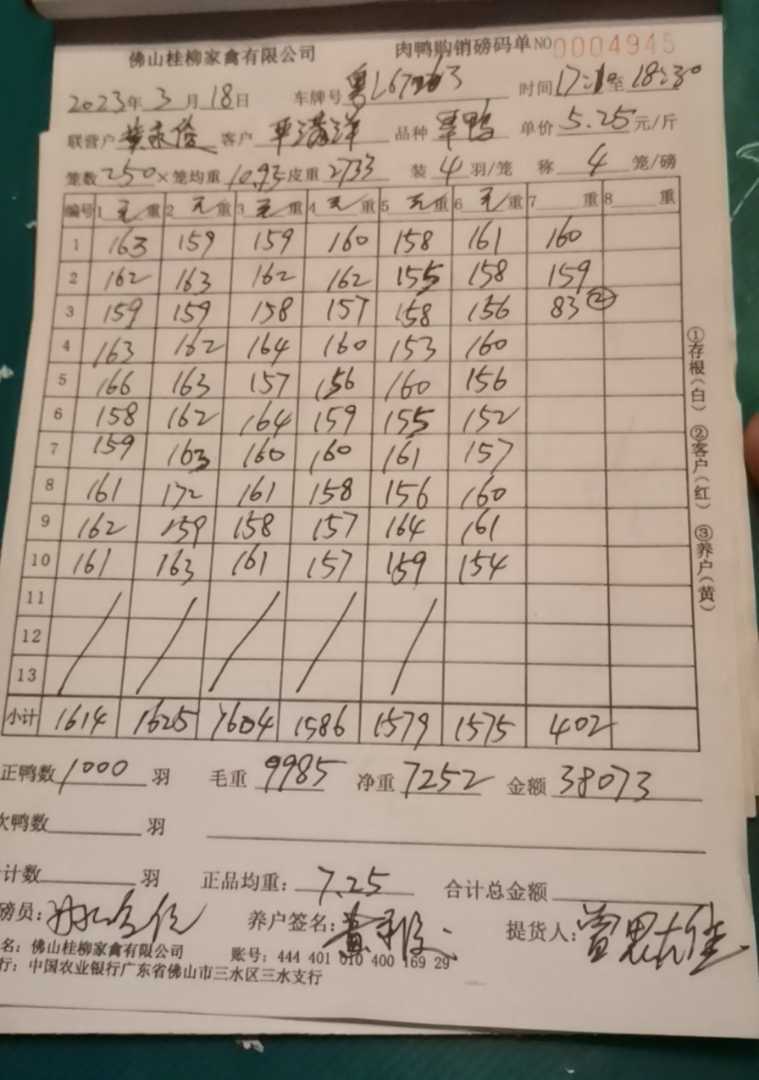 佛山桂柳家禽有限公司 肉鸭购销磅码单 NO 0004945
2023年 3 月 18 日 车牌号 粤L67 时间 17: 至 18:30
联营户 客户 品种 鸭 单价 5.25 元/斤
笼数 250 × 笼均重 10.93 皮重 2733 装 4 羽/笼 称 4 笼/磅
编号 1 重 2 重 3 重 4 重 5 重 6 重 7 重 8 重
1 163 159 159 160 158 161 160
2 162 163 162 162 155 158 159
3 159 159 158 157 158 156 83 ②
4 163 162 164 160 153 160
5 166 163 157 156 160 156
6 158 162 164 159 155 152
7 159 163 160 160 161 157
8 161 172 161 158 156 160
9 162 159 158 157 164 161
10 161 163 161 157 159 154
11
12
13
小计 1614 1625 1604 1586 1579 1575 402
正鸭数 1000 羽 毛重 9985 净重 7252 金额 38073
次鸭数 羽
计数 羽 正品均重: 7.25 合计总金额
磅员: 养户签名: 提货人:
名: 佛山桂柳家禽有限公司 账号: 444 401 010 400 169 29
行: 中国农业银行广东省佛山市三水区三水支行
①存根(白) ②客户(红) ③养户(黄)